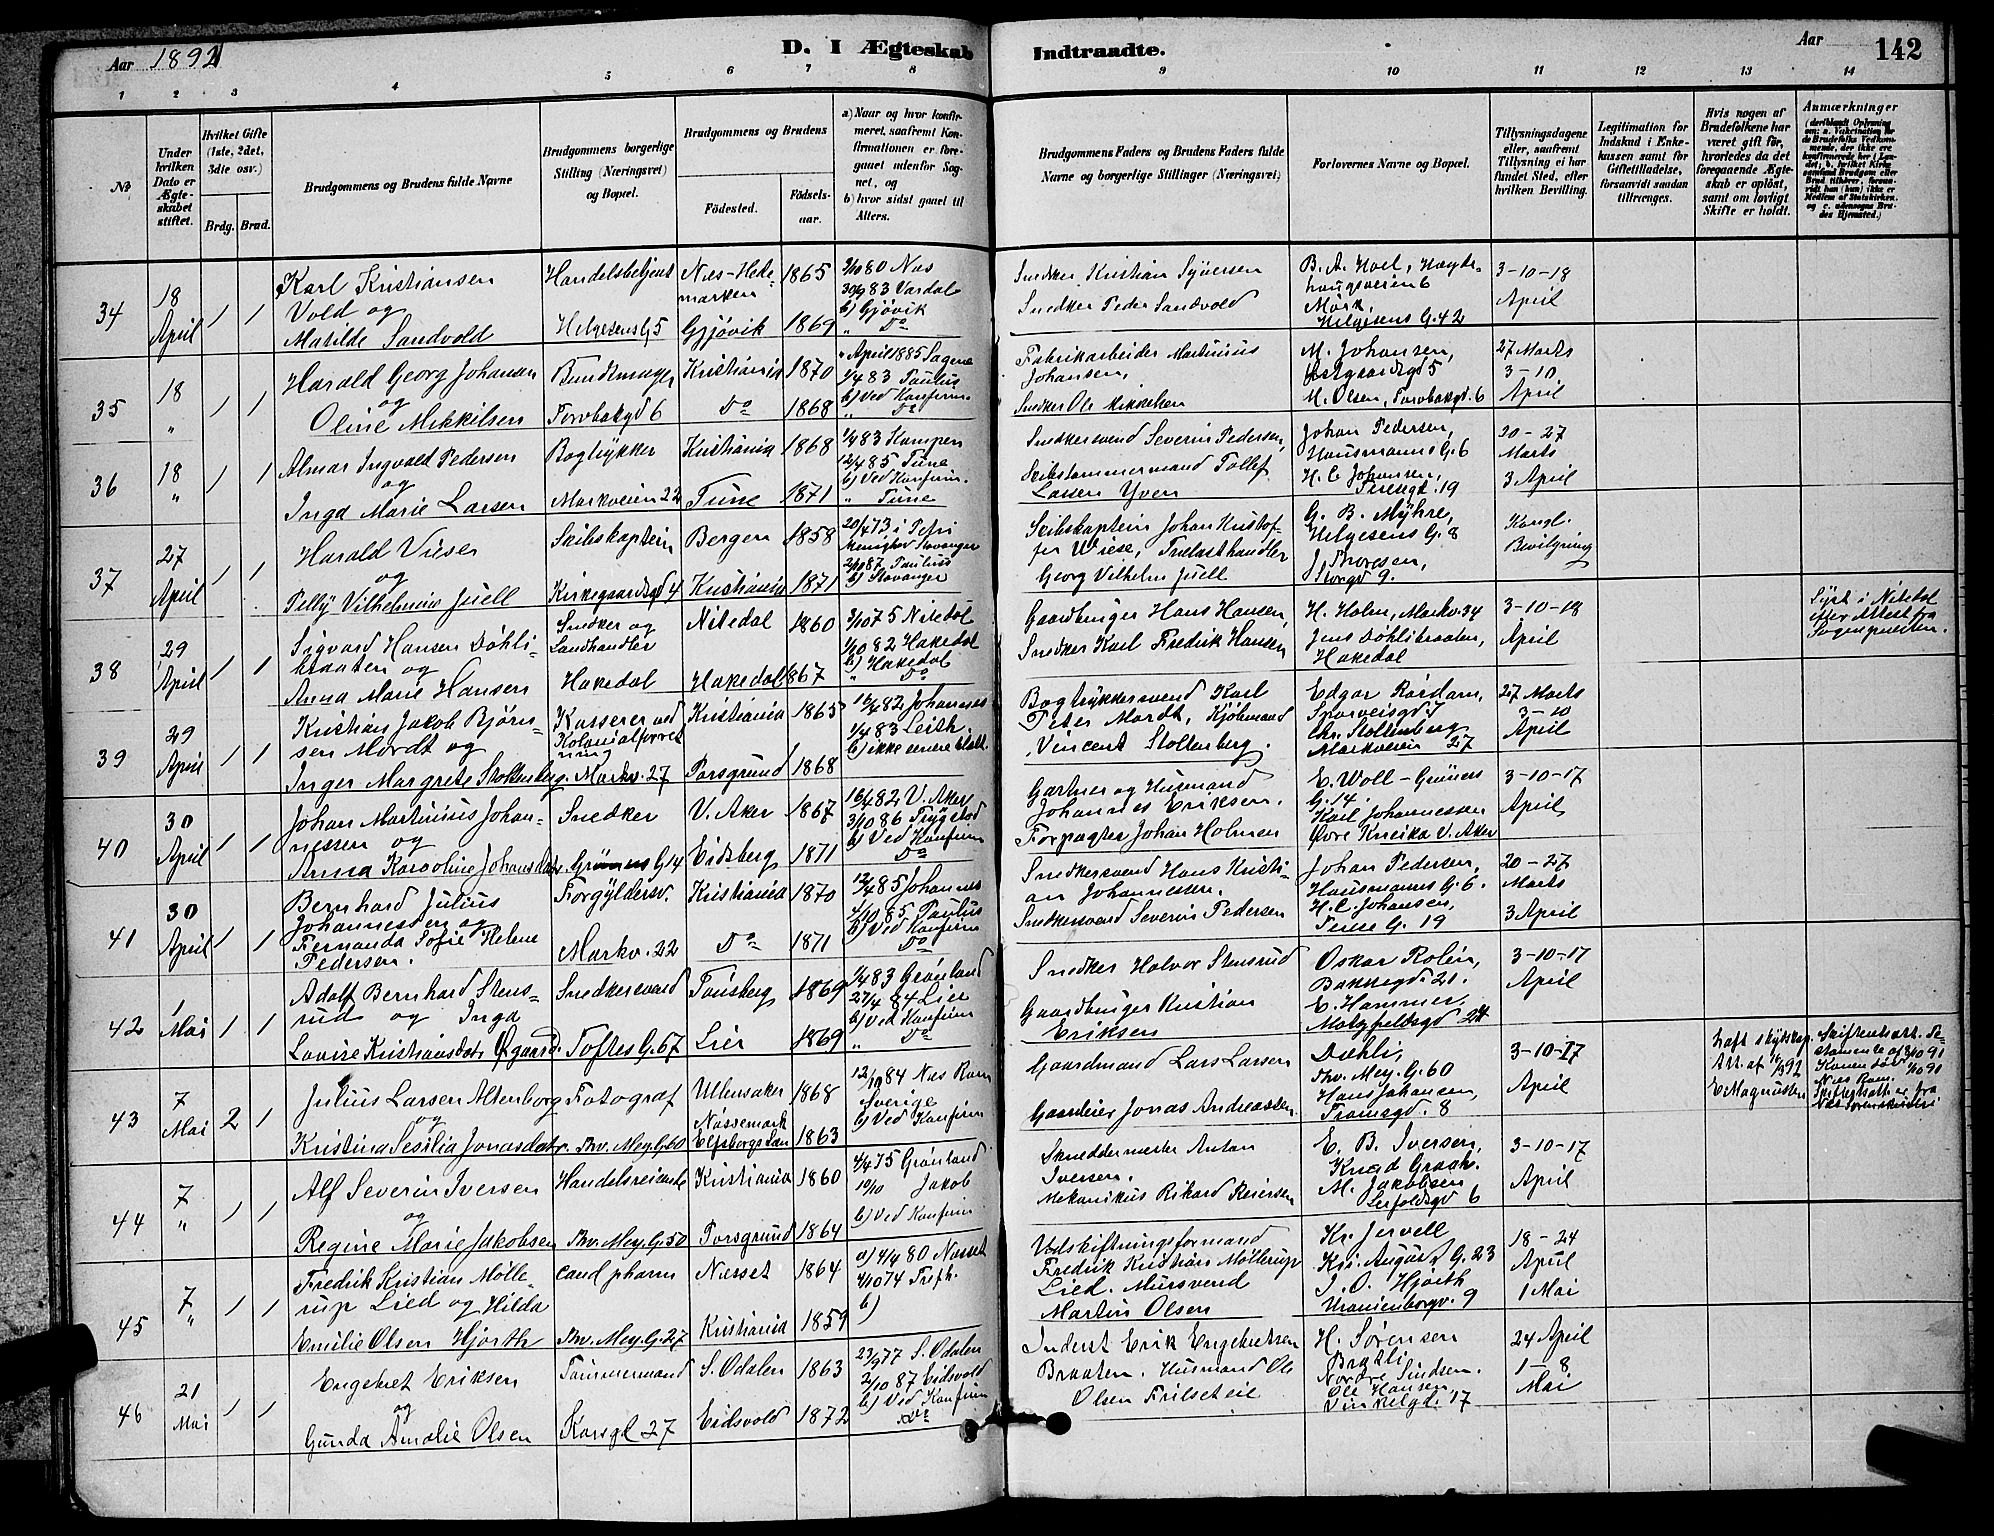 Aar 1892
D. I Ægteskab Indtraadte.
Aar
142
1 2 3 4 5 6 7 8 9 10 11 12 13 14
No
Under hvilken Dato er Ægteskabet stiftet.
Hvilket Gifte (1ste, 2det, 3die osv.)
Brdg. Brud.
Brudgommens og Brudens fulde Navne
Brudgommens borgerlige Stilling (Næringsvei) og Bopæl.
Brudgommens og Brudens
Fødested.
Fødselsaar.
a) Naar og hvor konfirmeret, saafremt Konfirmationen er foregaaet udenfor Sognet, og
b) hvor sidst gaaet til Alters.
Brudgommens Faders og Brudens Faders fulde Navne og borgerlige Stillinger (Næringsvei)
Forlovernes Navne og Bopæl.
Tillysningsdagene eller, saafremt Tillysning ei har fundet Sted, efter hvilken Bevilling.
Legitimation for Indskud i Enkekassen samt for Giftetilladelse, forsaavidt saadan tiltrænges.
Hvis nogen af Brudefolkene har været gift før, hvorledes da det foregaaende Ægteskab er opløst, samt om lovligt Skifte er holdt.
Anmærkninger
34 18 April 1 1
Karl Kristiansen Vold og
Matilde Sandvold
Handelsbetjent
Helgesens G. 5
Næs-Hedemarken 1865
Gjøvik 1869
80 Næs
83 Vardal
b) Gjøvik
" Do
Snedker Kristian Syversen
Snedker Peder Sandvold
B. A. Hoel,
Mørk,
Helgesens G. 42
3-10-18 April
35 18 " 1 1
Harald Georg Johansen
og
Oline Mikkilsen
Bundtmager
Torvbakgd 6
Kristiania 1870
Do 1868
" April 1885 Sagene
1/4 83 Paulus
b) Ved Konfirm.
" Do
Fabrikarbeider Martinius Johansen,
Snedker Ole Mikkelsen
M. Johansen,
M. Olsen, Torvbakgd. 6
27 Marts
3-10 April
36 18 " 1 1
Almar Ingvald Pedersen
og
Inga Marie Larsen
Bogtrykker
Markveien 22
Kristiania 1868
Tune 1871
83 Kampen
85 Tune
b) Ved Konfirm.
" Tune
Snedkersvend Severin Pedersen,
Skibstømmermand Tollef Larsen Yven
Johan Pedersen,
Hausmanns G. 6
H. C. Johansen,
Teresegd. 19
20-27 Marts
3 April
37 27 April 1 1
Harald Viese
og
Pelly Vilhelmine Juell
Skibskaptein
Kirkegaardsgd 4
Bergen 1858
Kristiania 1871
20/4 73 i Petri Menighed Stavanger
87 Paulus
b) Stavanger
Skibskaptein Johan Kristoffer Wiese, Trælasthandler Georg Vilhelm Juell
G. B. Myhre,
Helgesens G. 8
J. Thoresen,
Storgd 9.
Kongl. Bevilgning
38 29 April 1 1
Sigvard Hansen Døhlibraaten og
Anna Marie Hansen
Snedker og Landhandler
Hakedal
Nitedal 1860
Hakedal 1867
75 Nitedal
82 Hakedal
b) Hakedal
" Do
Gaardbruger Hans Hansen,
Snedker Karl Fredrik Hansen
H. Holm, Markv. 34
Jens Døhlibraaten,
Hakedal
3-10-18 April
Lyst i Nitedal efter Attest fra Sognepresten.
39 29 April 1 1
Kristian Jakob Bjørnsen Mordt og
Inger Margrete Stoltenberg.
Kasserer ved Kolonialforretning
Markv. 27
Kristiania 1865
Porsgrund 1868
82 Johannes
1/4 83 Leith.
b) ikke senere
Bogtrykkersvend Karl Peter Mordt, Kjøbmand
Vincent Stoltenberg.
Edgar Rørdam,
Sporveisgd 7
Chr. Stoltenberg
Markveien 27
27 Marts
3-10 April
40 30 April 1 1
Johan Martinius Johannessen og
Anna Karoline Johansdatr.
Snedker
Grüners G. 14
V. Aker 1867
Eidsberg 1871
82 V. Aker
86 Trygstad
b) Ved Konfirm
" Do
Gartner og Husmand Johannes Eriksen.
Forpagter Johan Holmen
E. Woll-Grüners G. 14.
Karl Johannessen
Øvre Kneika V. Aker
3-10-17 April
41 30 April 1 1
Bernhard Julius Johannessen og
Fernanda Sofie Helene Pedersen.
Forgyldersv.
Markv. 22
Kristiania 1870
Do 1871
85 Johannes
85 Paulus
b) Ved Konfirm
" Do
Snedkersvend Hans Kristian Johannessen.
Snedkersvend Severin Pedersen
Johan Pedersen,
Hausmanns G. 6.
H. C. Johansen,
Terese G. 19
20-27 Marts
3 April
42 1 Mai 1 1
Adolf Bernhard Stensrud og Inga
Lovise Kristiansdatr. Øgaard.
Snedkersvend
Toftes G. 67
Tønsberg 1869
Lier 1869
83 Grønland
84 Lier
b) Ved Konfirm
" Do
Snedker Halvor Stensrud
Gaardbruger Kristian Eriksen
Oskar Rolin,
Bakkegd. 21.
E. Hammer,
Motzfeldsgd 24
3-10-17 April
43 7 Mai 2 1
Julius Larsen Altenborg
og
Kristina Sesilia Jonasdatr.
Fotograf
Thv. Mey. G. 60
Ullensaker 1868
Nøssemark Elfsborgs Län 1863
84 Næs Rom
Sverige
b) Ved Konfirm
Gaardmand Lars Larsen
Gaardeier Jonas Andreassen.
Dæhli,
Thv. Mey. G. 60
Hans Johansen,
Tromsgd. 8
3-10-17 April
E. Magnussen
44 7 " 1 1
Alf Severin Iversen
og
Regine Marie Jakobsen
Handelsreisende
Thv. Mey. G. 50
Kristiania 1860
Porsgrund 1864
75 Grønland.
Jakob
b) Ved Konfirm
Skreddermester Anton Iversen.
Mekanikus Rikard Reiersen
E. B. Iversen,
Knud Graah.
M. Jakobsen
Seifoldsgd 6
3-10-17 April
45 7 " 1 1
Fredrik Kristian Møllerup Lied og Hilda
Emilie Olsen Hjorth
cand pharm
Thv. Mey. G. 27
Næsset 1864
Kristiania 1859
a) 80 Næsset
74 Trefh.
b)
Udskiftningsformand Fredrik Kristian Møllerup Lied. Mursvend
Martin Olsen
Kr. Jervell
Kr. August G. 23
J. O. Hjorth
Uranienborgv. 9
18-24 April
1 Mai
46 21 Mai 1 1
Engebret Eriksen
og
Gunda Amalie Olsen
Tømmermand
Korsgd 27
S. Odalen 1863
Eidsvold 1872
77 S. Odalen
87 Eidsvold
b) Ved Konfirm
" Do
Inderst Erik Engebretsen Braaten. Husmand Ole
Olsen Frilseteie
H. Sørensen
Bratli
Nordre Sindsen.
Ole Hansen,
Vinkelgd. 17
24 April
1-8 Mai